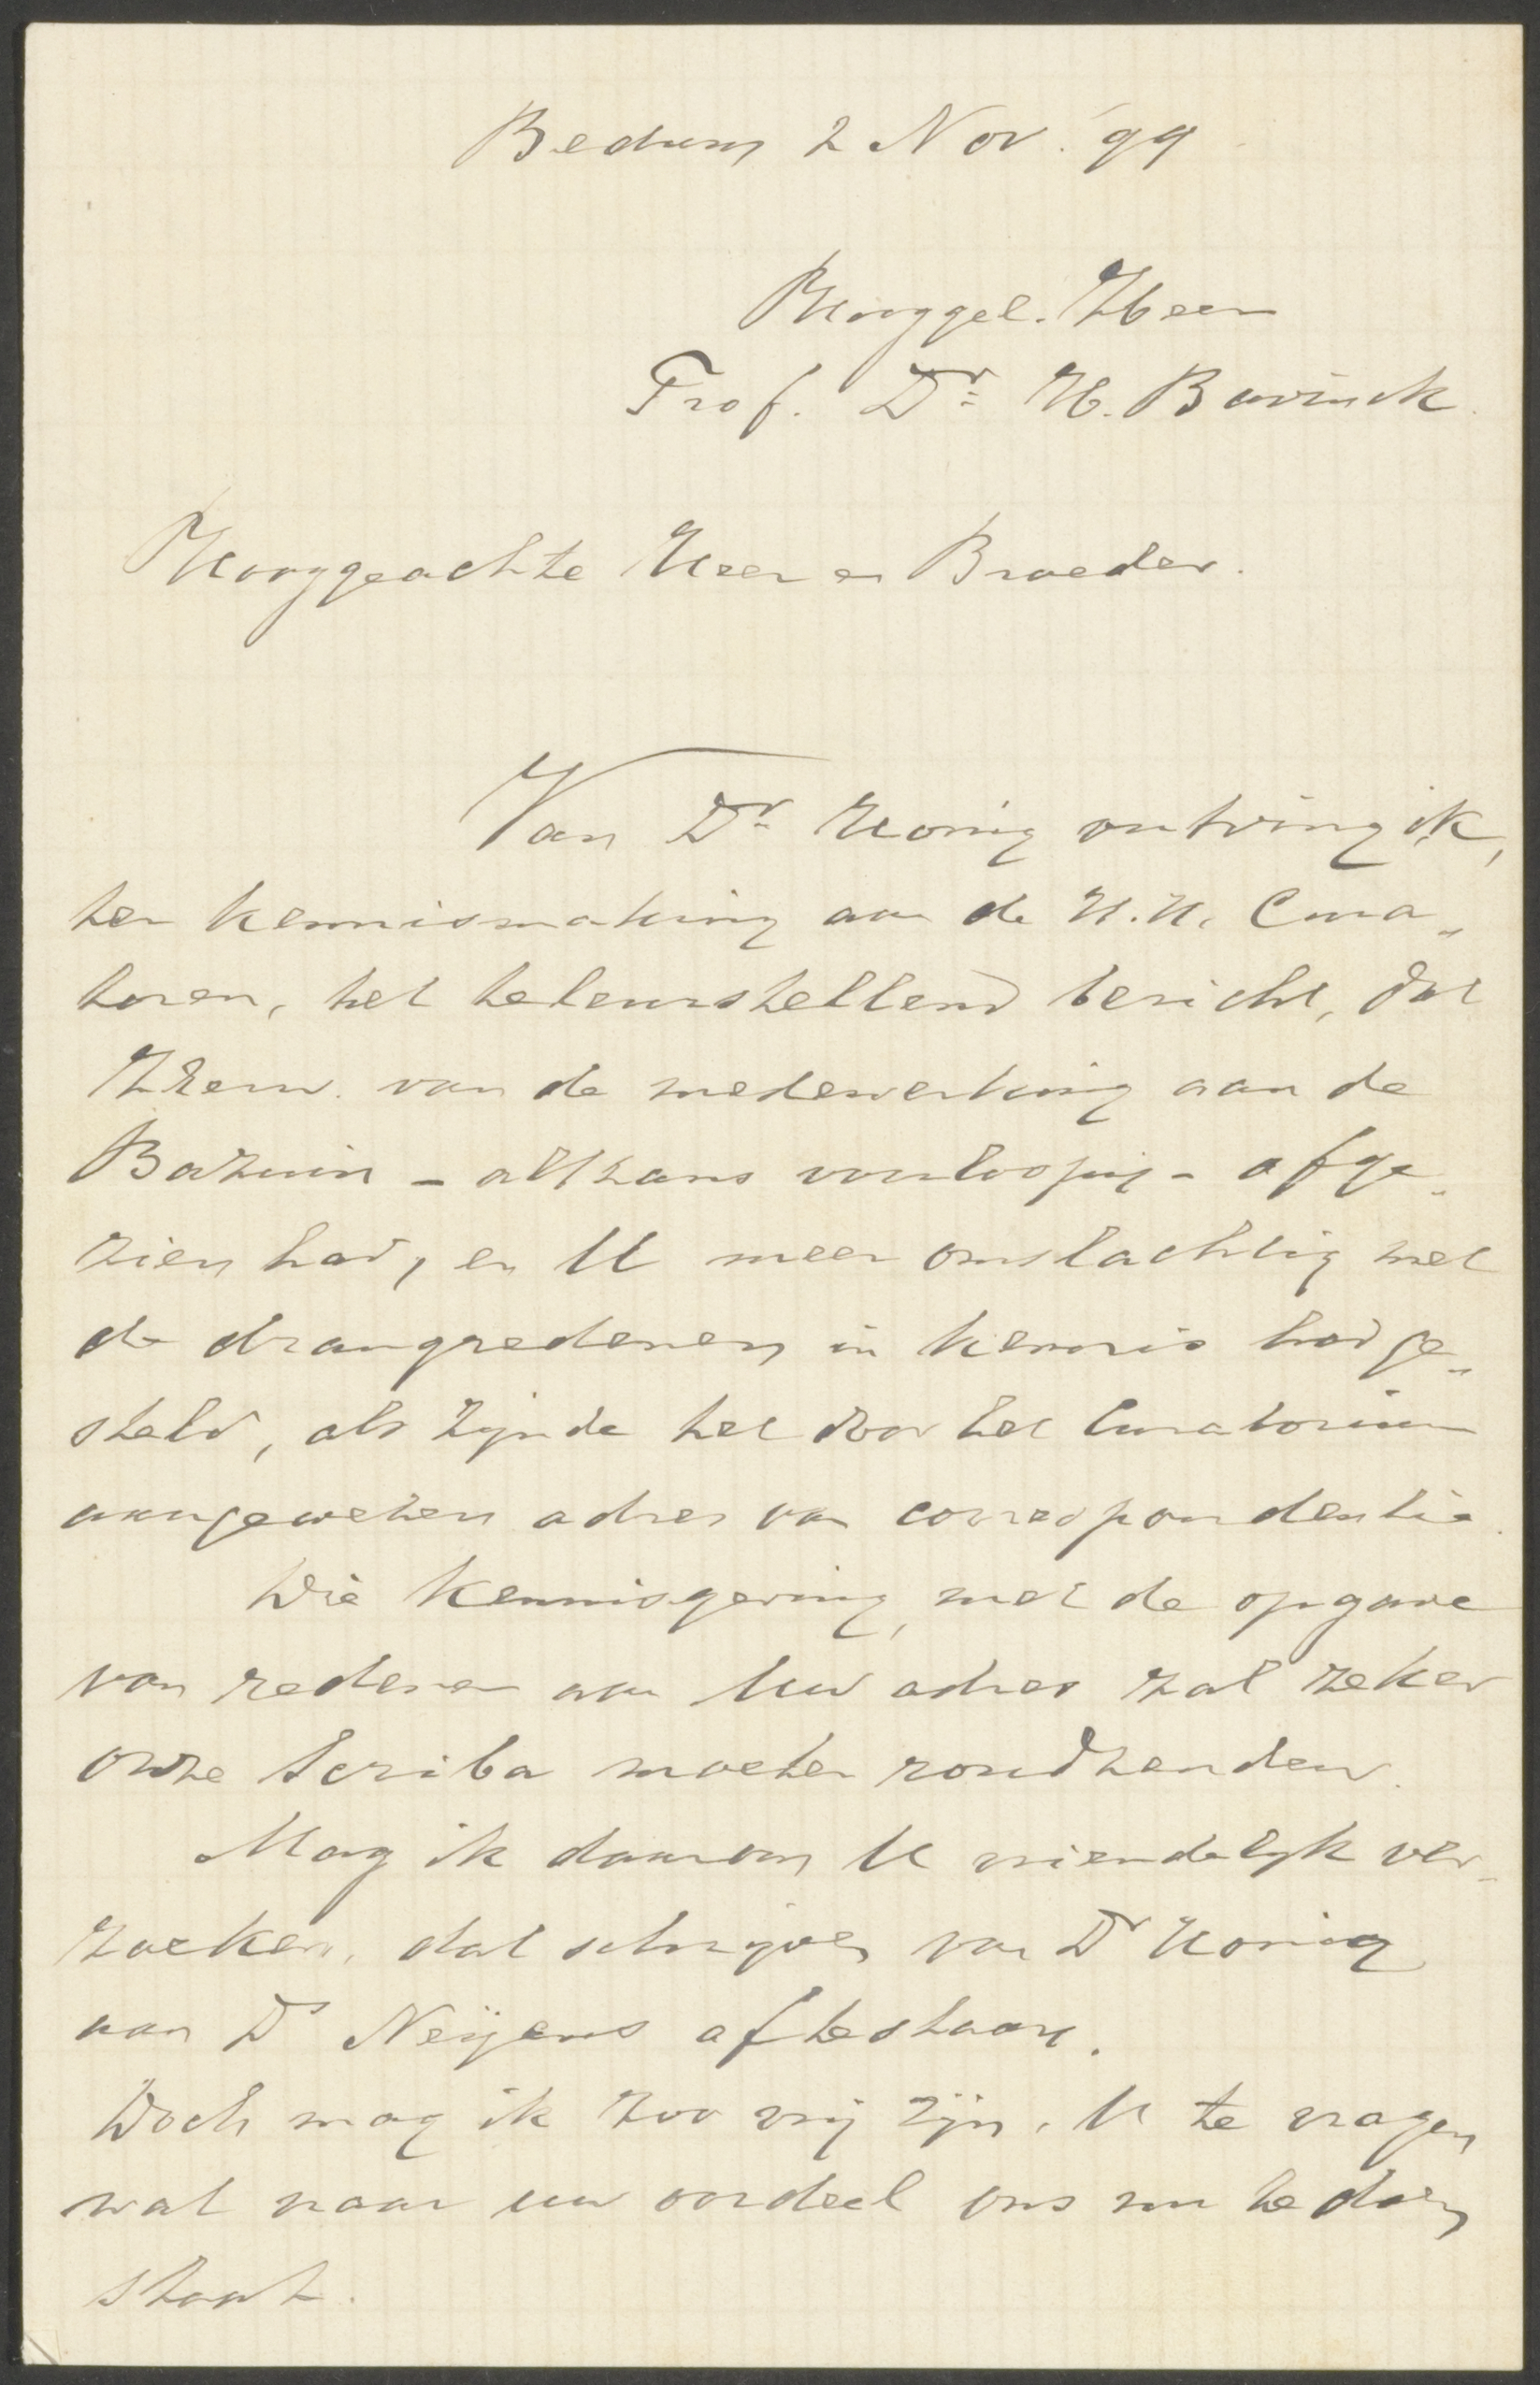 Bedum 2 Nov. '99
Hooggel. Heer
Prof. Dr. H. Bavinck.
Hooggeachte Heer en Broeder.
Van Dr. Honig ontving ik,
ter kennismaking aan de H.H. Cura-
toren, het teleurstellend bericht, dat
ZEerw. van de medewerking aan de
Bazuin - althans voorloopig - afge-
zien had, en U meer omslachtig met
de drangredenen in kennis had ge-
steld, als zijnde het door het Curatorium
aangewezen adres van correspondentie.
Die kennisgeving, met de opgave
van redenen aan Uw adres zal zeker
onze Scriba moeten rondzenden.
Mag ik daarom U vriendelijk ver-
zoeken, dat schrijven van Dr Honig
aan Ds Neijens aftestaan.
Doch mag ik zoo vrij zijn, U te vragen
wat naar uw oordeel ons nu te doen
staat.